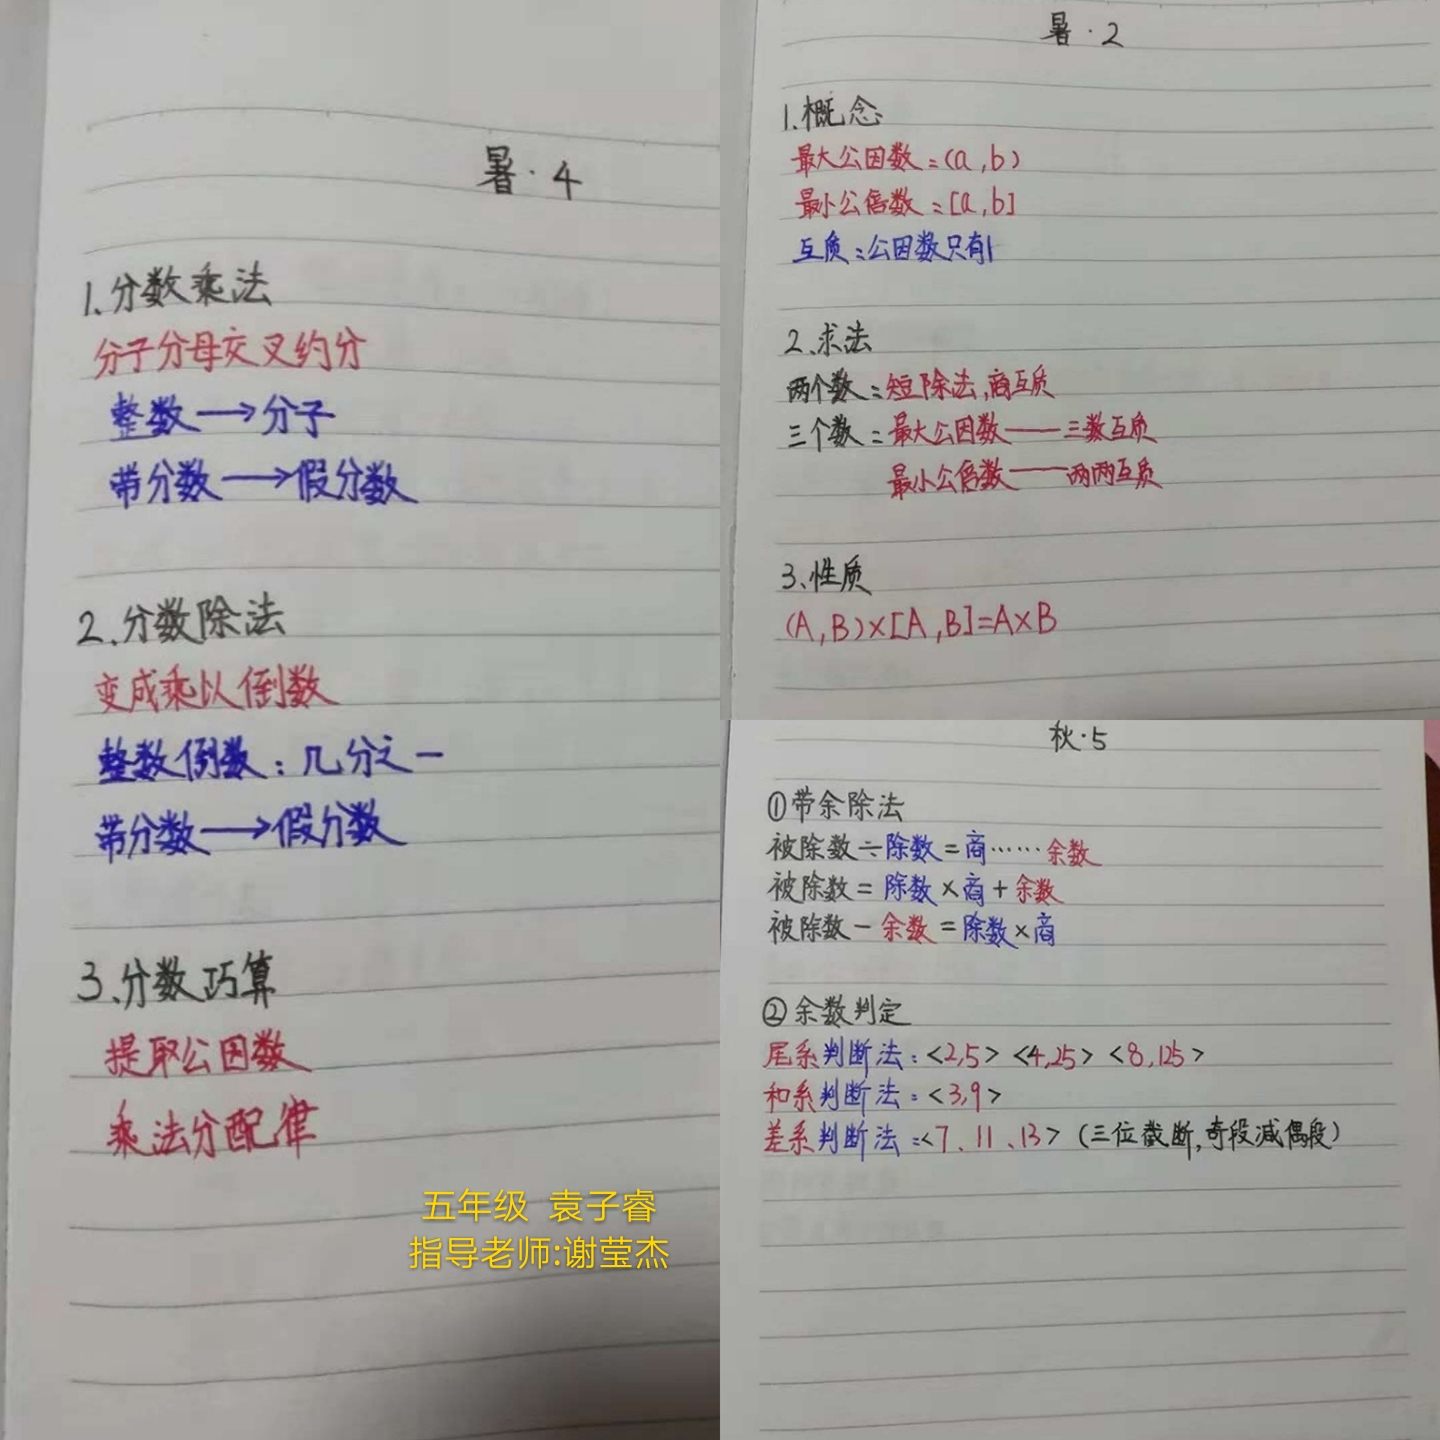 暑·4
1、分数乘法
分子分母交叉约分
整数→分子
带分数→假分数
2、分数除法
变成乘以倒数
整数倒数:几分之一
带分数→假分数
3、分数巧算
提取公因数
乘法分配律
五年级 袁子睿
指导老师:谢莹杰
暑·2
1、概念
最大公因数:(a,b)
最小公倍数:[a,b]
互质:公因数只有1
2、求法
两个数:短除法,商互质
三个数:最大公因数——三数互质
最小公倍数——两两互质
3、性质
(A,B)×[A,B]=A×B
秋·5
①带余除法
被除数÷除数=商……余数
被除数=除数×商+余数
被除数-余数=除数×商
②余数判定
尾系判断法:<2,5> <4,25> <8,125>
和系判断法:<3,9>
差系判断法:<7、11、13>(三位截断,奇段减偶段)